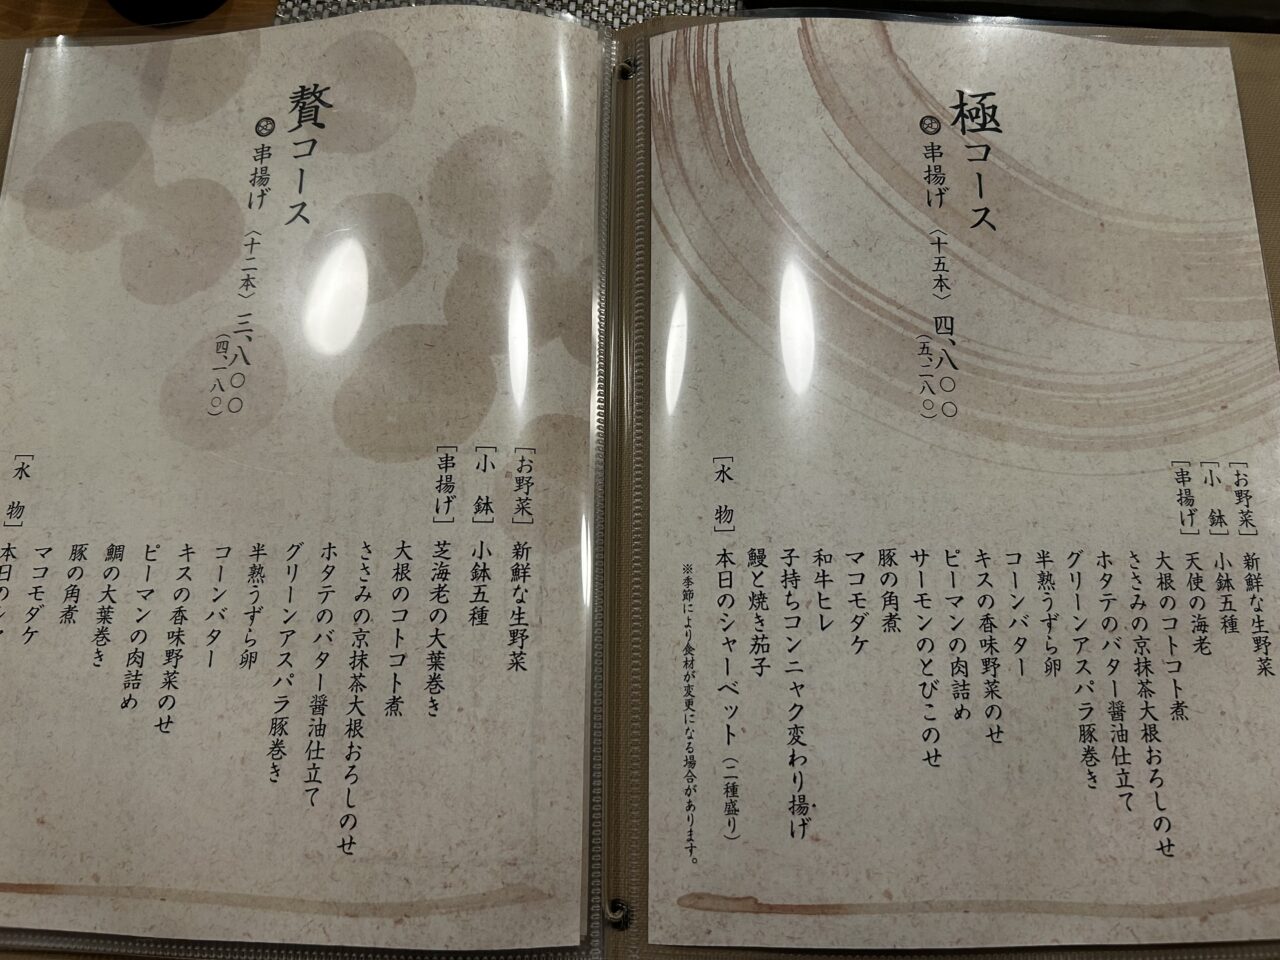 極コース
串揚げ〈十五本〉四、八〇〇
（五、二八〇）
［お野菜］新鮮な生野菜
［小鉢］小鉢五種
［串揚げ］天使の海老
大根のコトコト煮
ささみの京抹茶大根おろしのせ
ホタテのバター醤油仕立て
グリーンアスパラ豚巻き
半熟うずら卵
コーンバター
キスの香味野菜のせ
ピーマンの肉詰め
サーモンのとびこのせ
豚の角煮
マコモダケ
和牛ヒレ
子持ちコンニャク変わり揚げ
鰻と焼き茄子
［水物］本日のシャーベット（二種盛り）
※季節により食材が変更になる場合があります。
贅コース
串揚げ〈十二本〉三、八〇〇
（四、一八〇）
［お野菜］新鮮な生野菜
［小鉢］小鉢五種
［串揚げ］芝海老の大葉巻き
大根のコトコト煮
ささみの京抹茶大根おろしのせ
ホタテのバター醤油仕立て
グリーンアスパラ豚巻き
半熟うずら卵
コーンバター
キスの香味野菜のせ
ピーマンの肉詰め
鯛の大葉巻き
豚の角煮
マコモダケ
［水物］本日の